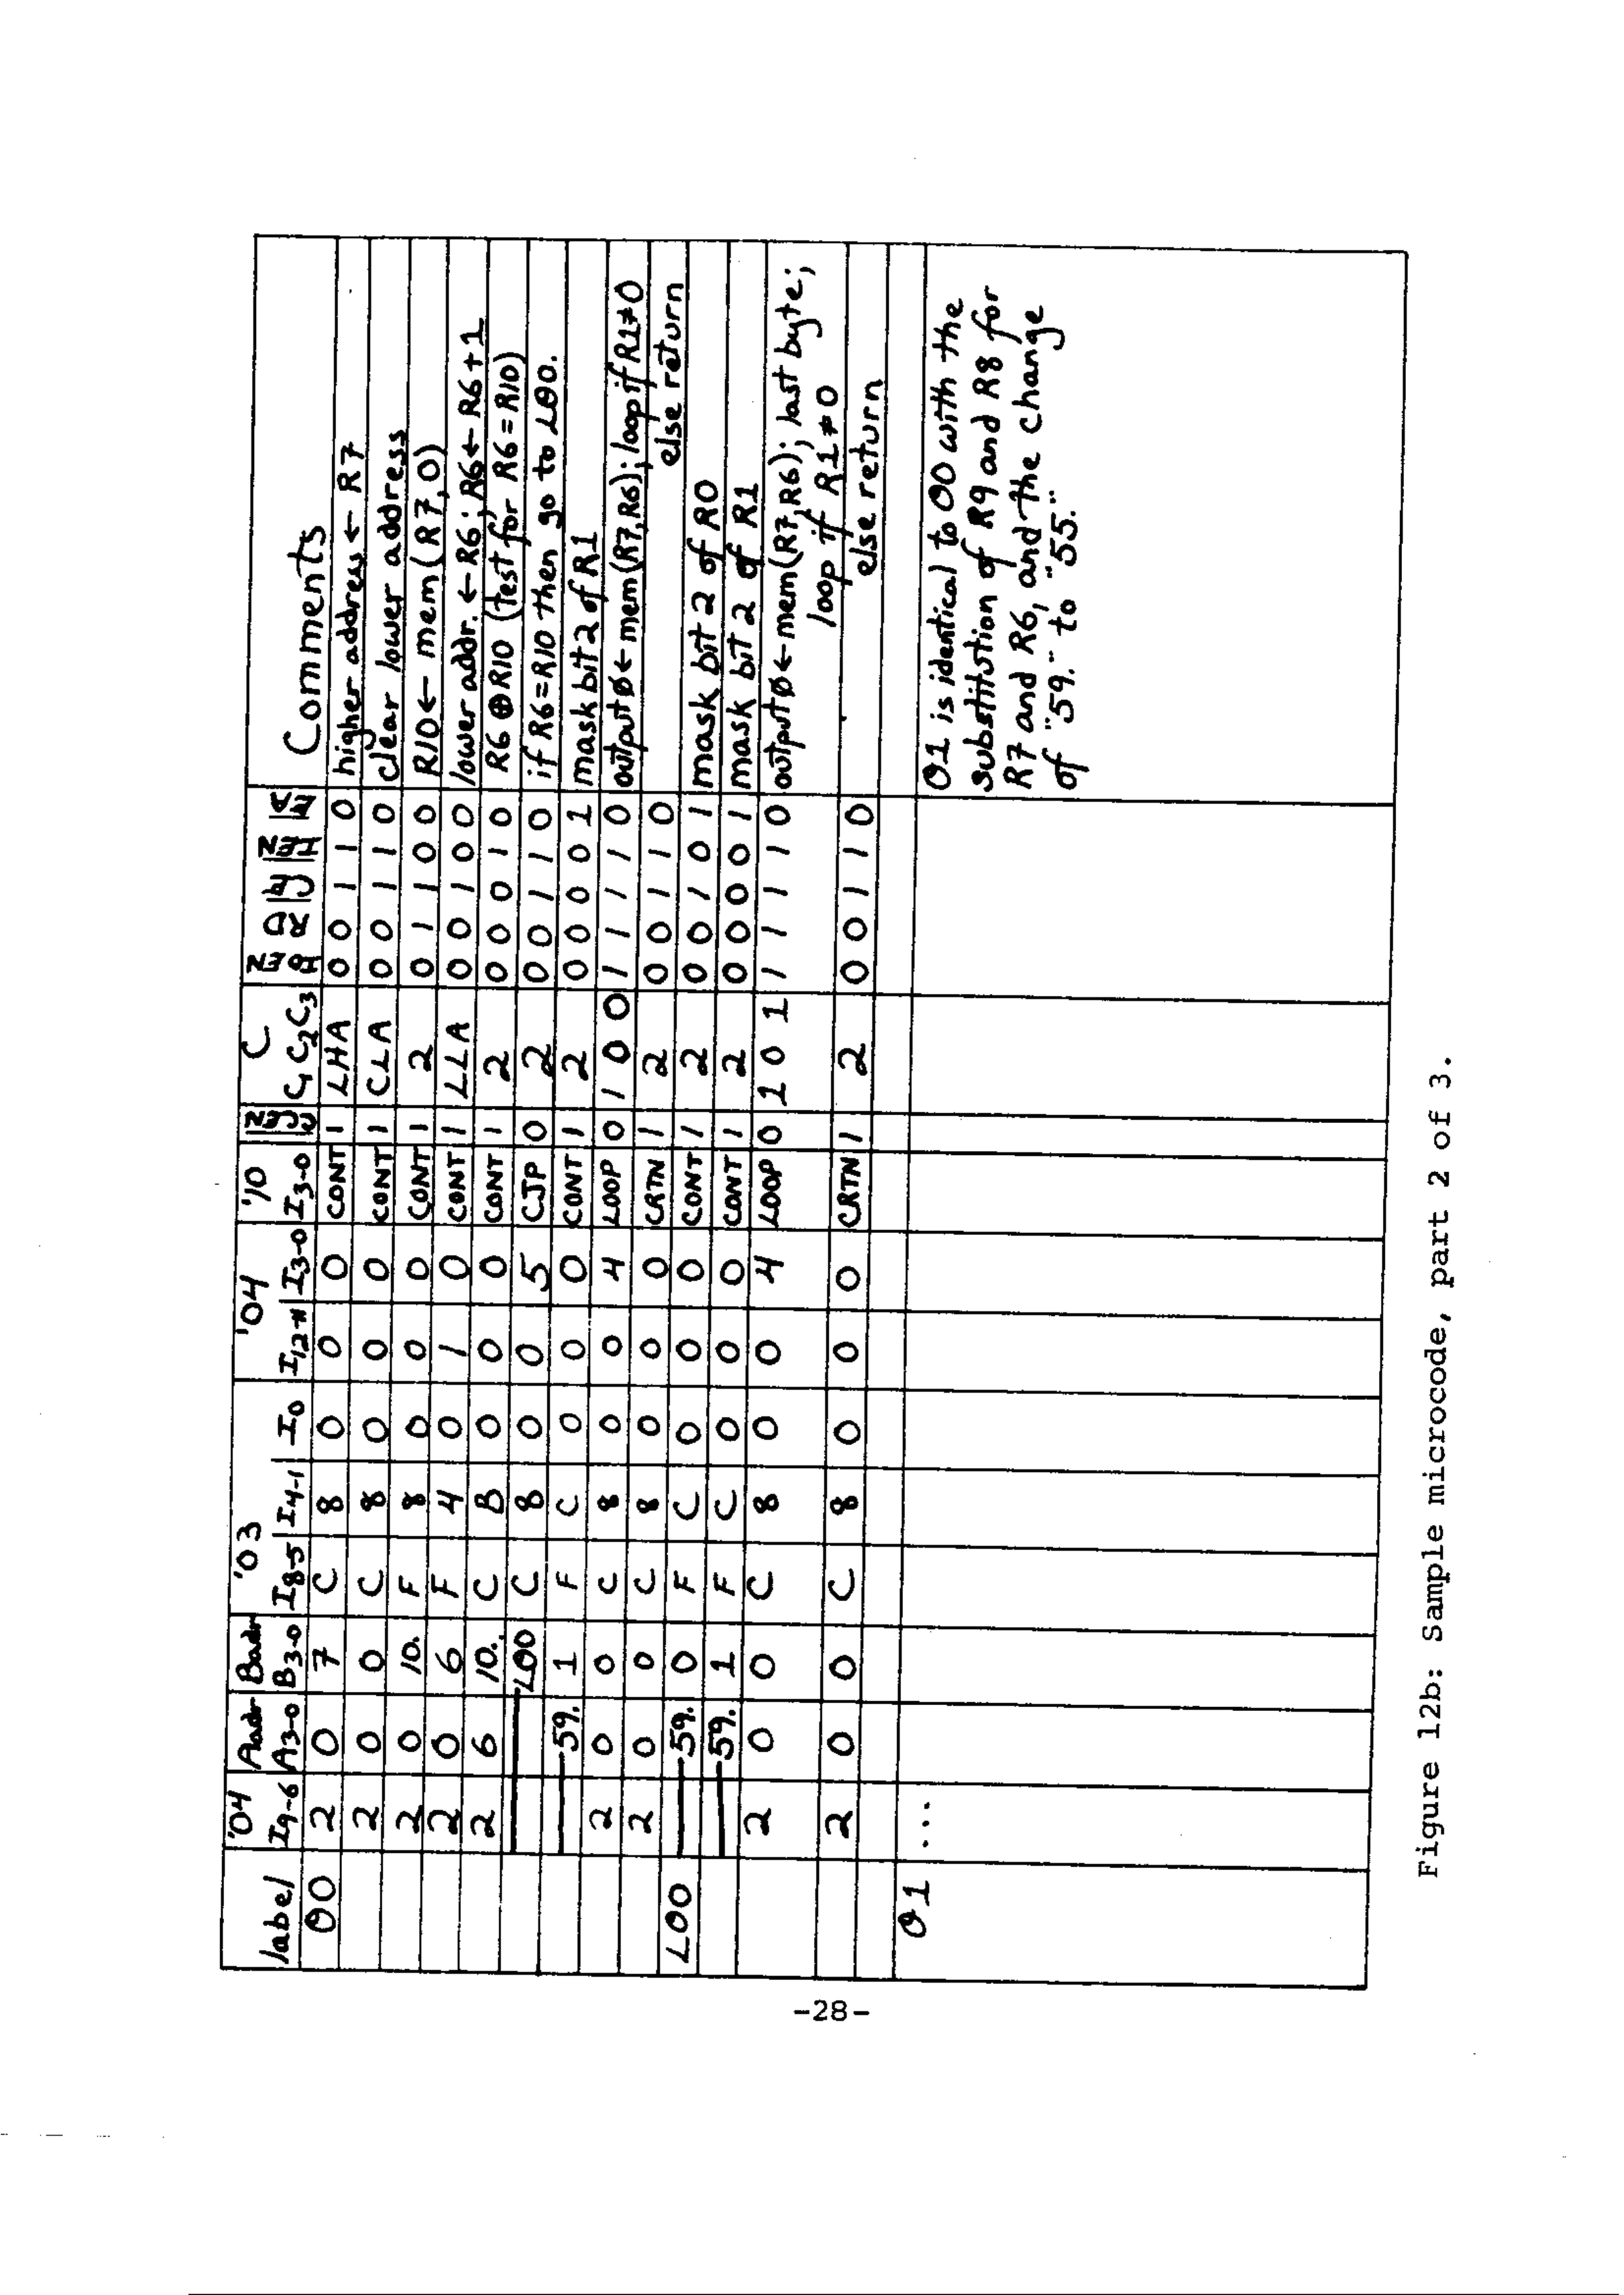 '04 Aadr Badr '03 '04 '10 C
label I9-6 A3-0 B3-0 I8-5 I4-1 I0 I12-11 I3-0 I3-0 CCEN C1C2C3 HOEN RD Cy IEN EA Comments
00 2 0 7 C 8 0 0 0 CONT 1 LHA 0 0 1 1 0 higher address ← R7
2 0 0 C 8 0 0 0 CONT 1 CLA 0 0 1 1 0 clear lower address
2 0 10. F 8 0 0 0 CONT 1 2 0 1 1 0 0 R10 ← mem(R7,0)
2 0 6 F 4 0 1 0 CONT 1 LLA 0 0 1 0 0 lower addr. ← R6; R6 ← R6+1
2 6 10. C B 0 0 0 CONT 1 2 0 0 0 1 0 R6 ⊕ R10 (test for R6=R10)
L00 C 8 0 0 5 CJP 0 2 0 0 1 1 0 if R6=R10 then go to L00.
59. 1 F C 0 0 0 CONT 1 2 0 0 0 0 1 mask bit 2 of R1
2 0 0 C 8 0 0 4 LOOP 0 1 0 0 1 1 1 1 0 output0 ← mem(R7,R6); loop if R1≠0
2 0 0 C 8 0 0 0 CRTN 1 2 0 0 1 1 0 else return
L00 59. 0 F C 0 0 0 CONT 1 2 0 0 1 0 1 mask bit 2 of R0
59. 1 F C 0 0 0 CONT 1 2 0 0 0 0 1 mask bit 2 of R1
2 0 0 C 8 0 0 4 LOOP 0 1 0 1 1 1 1 1 0 output0 ← mem(R7,R6); last byte;
loop if R1≠0
2 0 0 C 8 0 0 0 CRTN 1 2 0 0 1 1 0 else return
01 ... 01 is identical to 00 with the
substitution of R9 and R8 for
R7 and R6, and the change
of "59." to "55."
Figure 12b: Sample microcode, part 2 of 3.
-28-